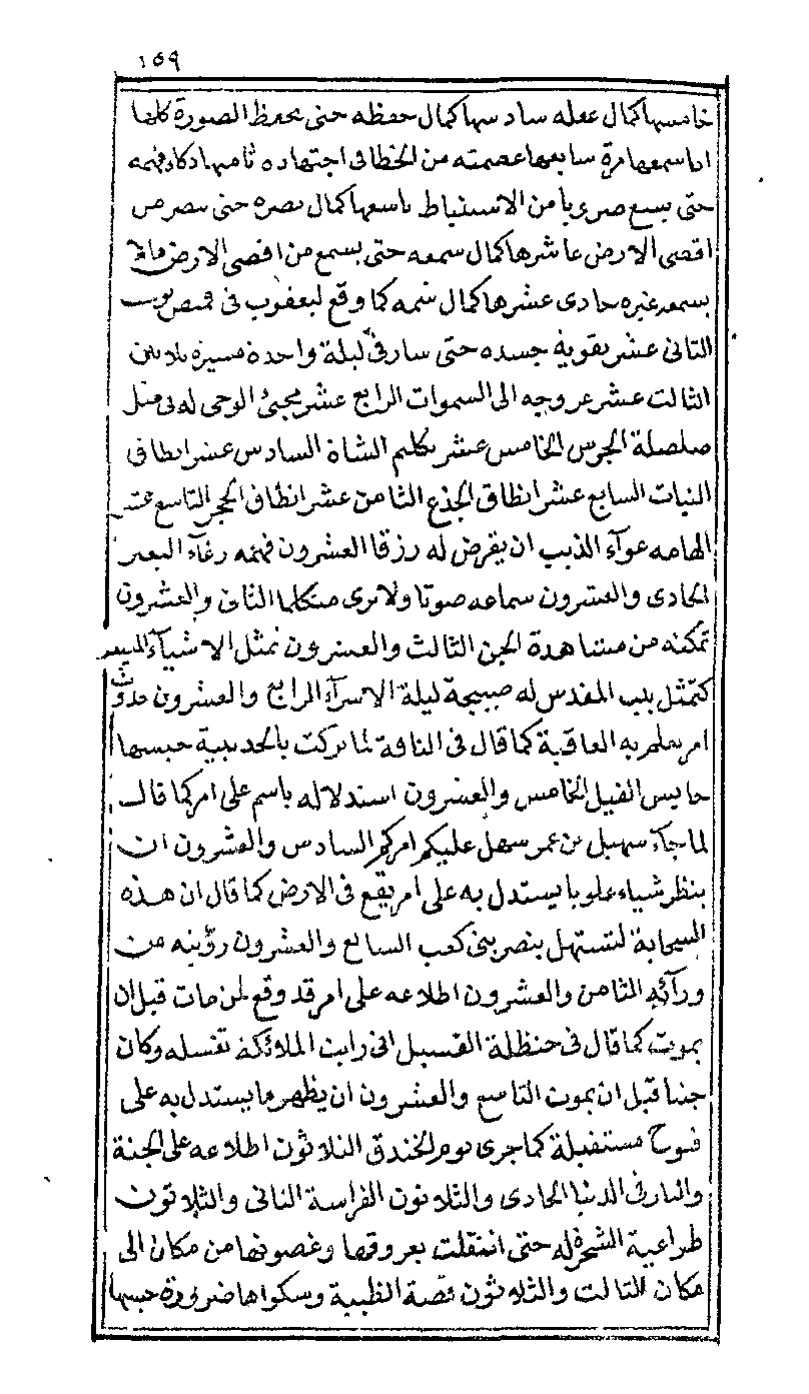 ١٥٩
خامسها كمال عقله سادسها كمال حفظه حتى يحفظ الصورة كلها
اذا سمعها مرة سابعها عصمته من الخطا فى اجتهاده ثامنها ذكاء فهمه
حتى يسع ضروبا من الاستنباط تاسعها كمال بصره حتى يبصر من
اقصى الارض عاشرها كمال سمعه حتى يسمع من اقصى الارض مالا
يسمعه غيره حادى عشرها كمال شمه كما وقع ليعقوب فى قميص يوسف
الثانى عشر تقوية جسده حتى سار فى ليلة واحدة مسيرة ثلاثين
الثالث عشر عروجه الى السموات الرابع عشر مجئ الوحى له فى مثل
صلصلة الجرس الخامس عشر تكليم الشاة السادس عشر انطاق
النبات السابع عشر انطاق الجذع الثامن عشر انطاق الحجر التاسع عشر
الهامه عوآء الذيب ان يفرض له رزقا العشرون فهمه رغآء البعير
الحادى والعشرون سماعه صوتا ولا يرى متكلما الثانى والعشرون
تمكنه من مشاهدة الجن الثالث والعشرون تمثل الاشيآء المغيبه
كتمثل بيت المقدس له صبيحة ليلة الاسرآء الرابع والعشرون حدوث
امر يعلم به العاقبة كما قال فى الناقة لما بركت بالحديبية حبسها
حابس الفيل الخامس والعشرون استدلاله باسم على امر كما قال
لما جآء سهيل بن عمر سهل عليكم امركم السادس والعشرون ان
ينظر شياء علويا يستدل به على امر يقع فى الارض كما قال ان هذه
السحابة لتستهل بنصر بنى كعب السابع والعشرون رؤيته من
ورآئه الثامن والعشرون اطلاعه على امر قد وقع لمن مات قبل ان
يموت كما قال فى حنظلة الغسيل انى رايت الملائكة تغسله وكان
جنبا قبل ان يموت التاسع والعشرون ان يظهر ما يستدل به على
فتوح مستقبلة كما جرى يوم الخندق الثلاثون اطلاعه على الجنة
والنار فى الدنيا الحادى والثلاثون الفراسة الثانى والثلاثون
طواعية الشجرة له حتى انتقلت بعروقها وغصونها من مكان الى
مكان الثالث والثلاثون قصة الظبية وسكواها ضرورة حبسها